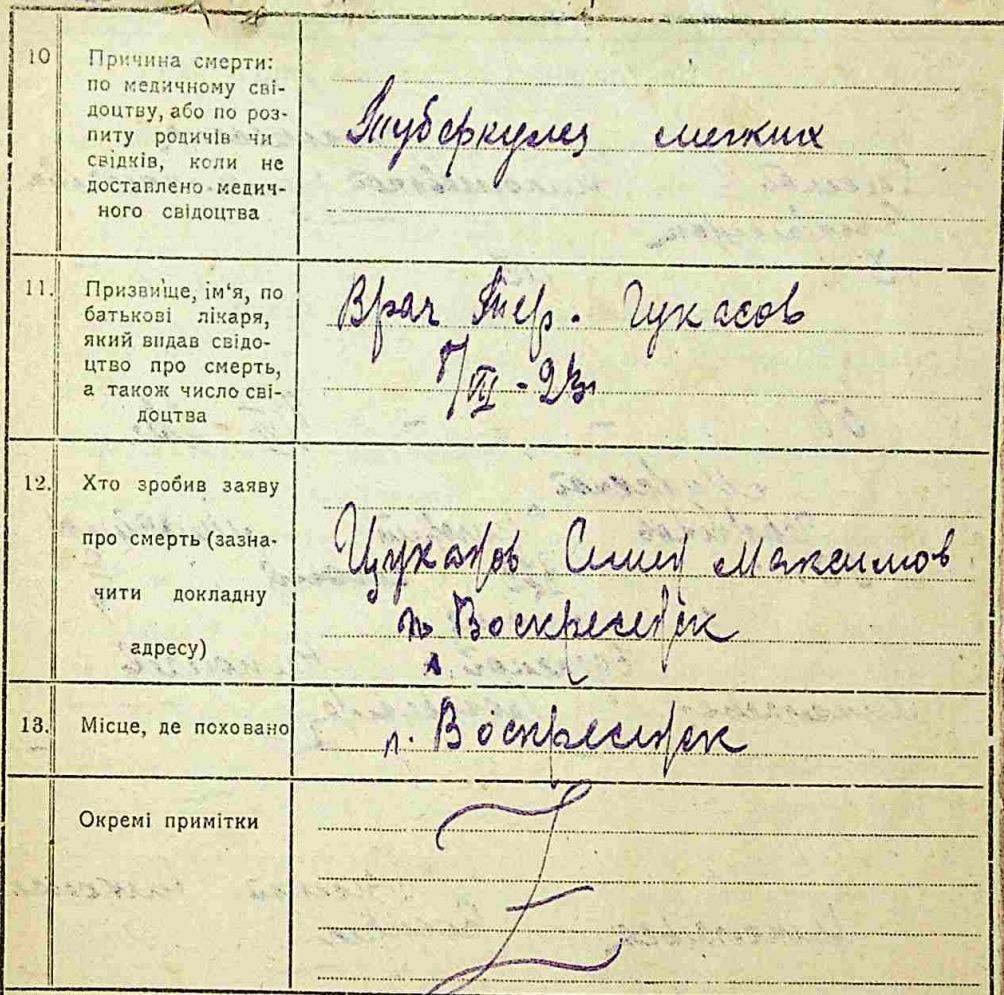 10 Причина смерти:
по медичному сві-
доцтву, або по роз-
питу родичів чи
свідків, коли не
доставлено медич-
ного свідоцтва
Туберкулез легких
11. Призвище, ім'я, по
батькові лікаря,
який видав свідо-
цтво про смерть,
а також число сві-
доцтва
Врач Тер. Гукасов
12. Хто зробив заяву
про смерть (зазна-
чити докладну
адресу)
Цуканов Максимов
п. Воскресенск
13. Місце, де поховано
п. Воскресенск
Окремі примітки